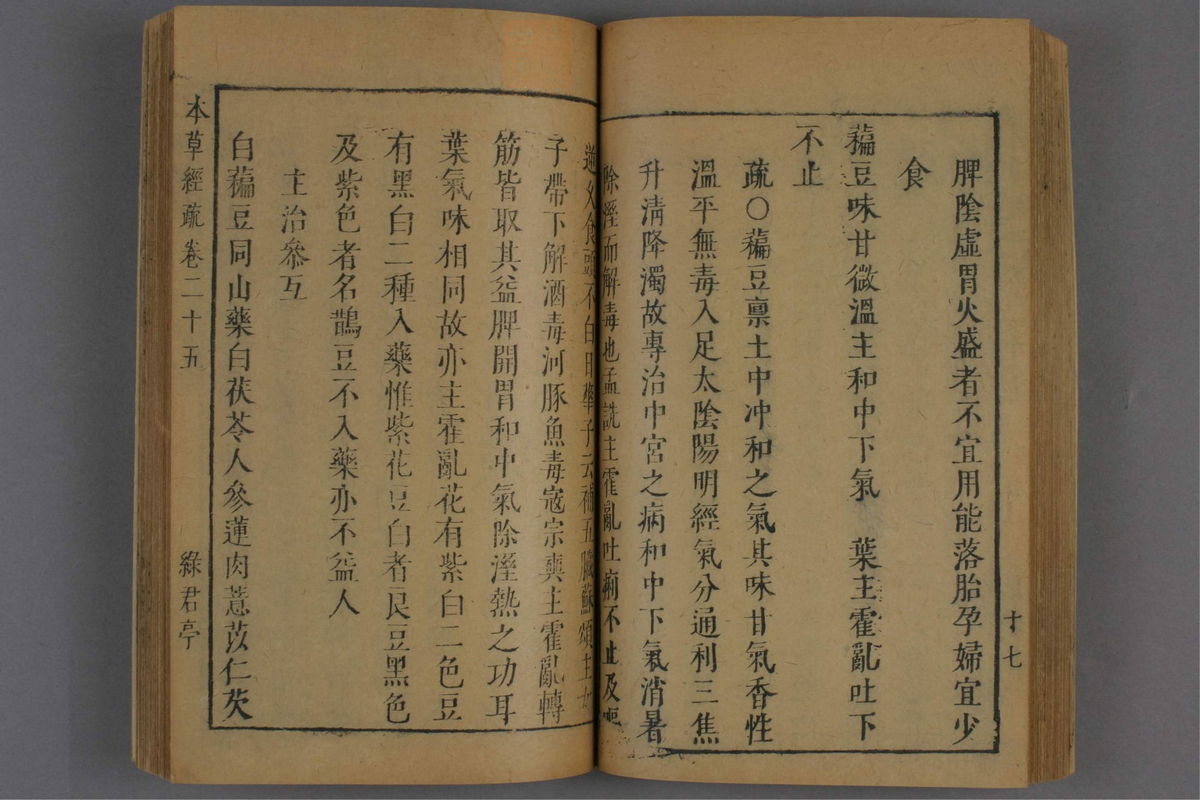 十七
脾陰虛胃火盛者不宜用能落胎孕婦宜少
食
藊豆味甘微溫主和中下氣　葉主霍亂吐下
不止
疏○藊豆稟土中冲和之氣其味甘氣香性
溫平無毒入足太陰陽明經氣分通利三焦
升淸降濁故專治中宮之病和中下氣消暑
除溼而解毒也孟詵主霍亂吐痢不止及嘔
逆久食頭不白日華子云補五臟蘇頌主女
子帶下解酒毒河豚魚毒寇宗奭主霍亂轉
筋皆取其益脾開胃和中氣除溼熱之功耳
葉氣味相同故亦主霍亂花有紫白二色豆
有黑白二種入藥惟紫花豆白者良豆黑色
及紫色者名鵲豆不入藥亦不益人
主治參互
白藊豆同山藥白茯苓人參蓮肉薏苡仁芡
本草經疏卷二十五
綠君亭